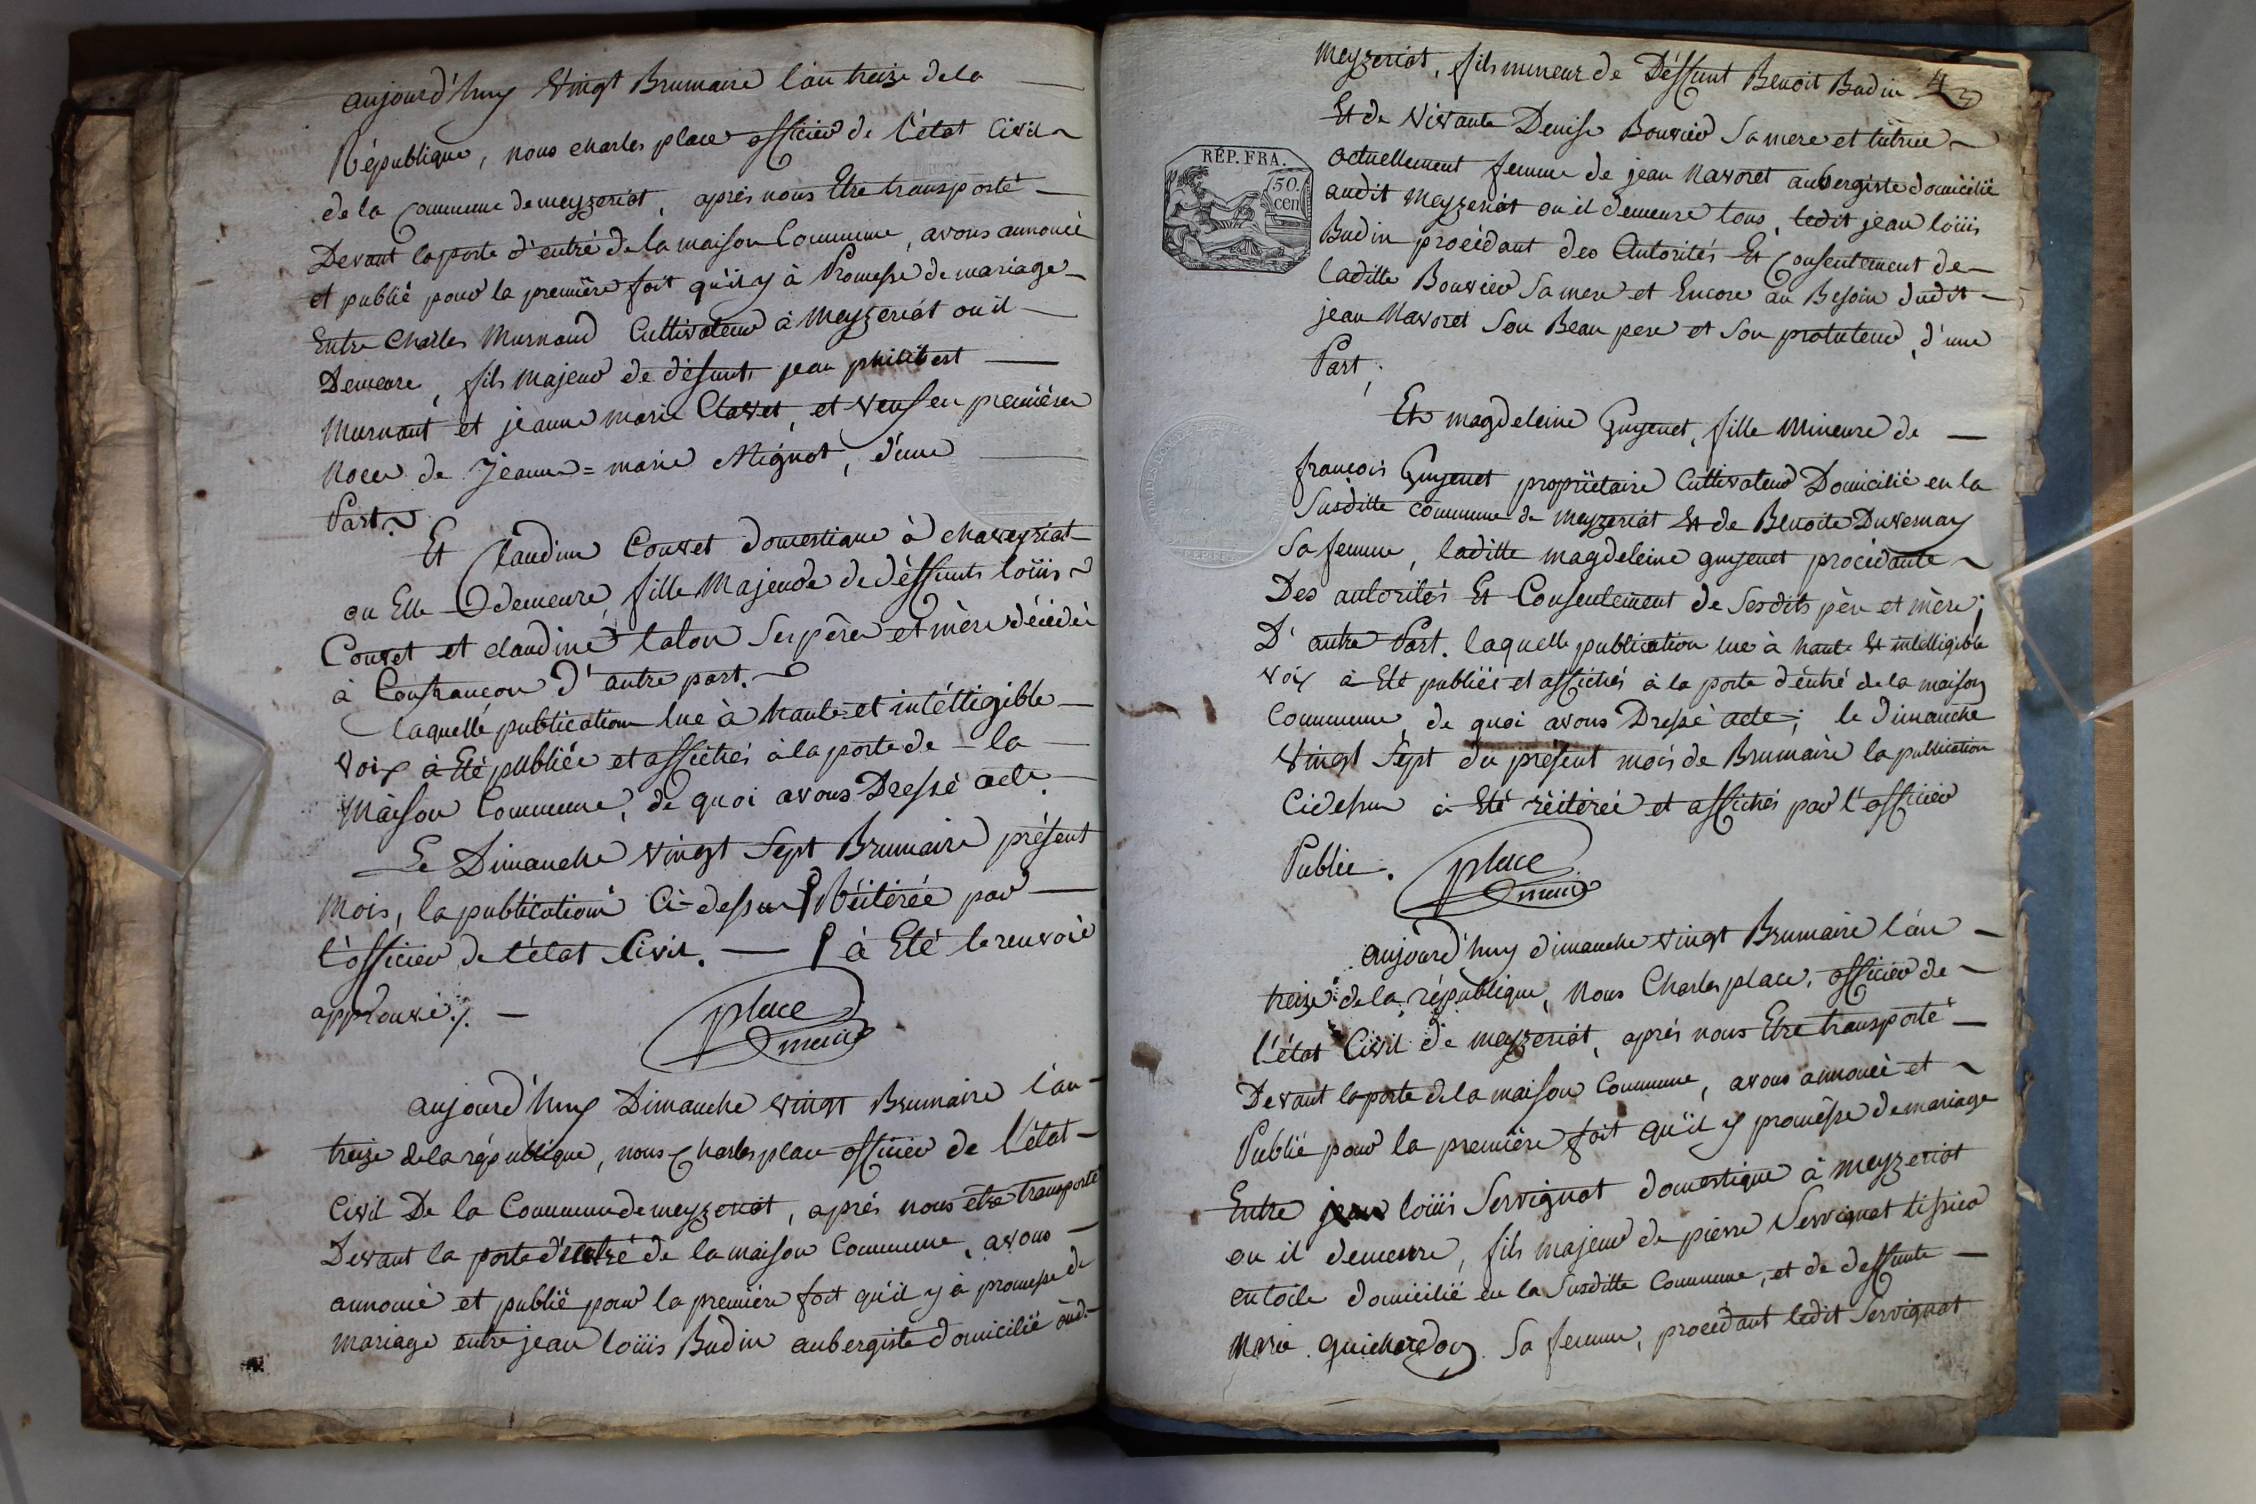 aujourd'huy Vingt Brumaire l'an treize de la
République, nous charles place officier de l'état Civil
de la Commune de meyzeriat, aprés nous Etre transporté
Devant la porte d'entré de la maison Commune, avons annoncé
et publié pour la premiére foit qu'il y à Promesse de mariage
Entre Charles Murnaud Cultivateur à Meyzeriat ou il
Demeure, fils Majeur de défunts jean philibert
Murnant et jeanne marie Clavet, et veuf en premiéres
Noces de Jeanne=marie Mignot, d'une
Part
Et Claudine Couvet domestique à chaveyriat
ou Elle demeure, fille Majeure de déffunts loüis
Couvet et claudine talon Ses péres et méres décédés
à Confrançon D'autre part.
laquelle publication lue à haute et intélligible
voix à Eté publiée et affichés à la porte de la
Maison Commune, de quoi avons Dressé acte.
Le Dimanche vingt Sept Brumaire présent
Mois, la publication Ci-dessus Réitérée par
l'officier de l'état Civil. — à Eté le renvoié
approuvé /. —
place
maire
aujourd'huy Dimanche vingt Brumaire l'an
treize de la république, nous Charles place officier de l'état
Civil De la Commune de meyzeriat, aprés nous etre transporté
Devant la porte d'entré de la maison Commune, avons
annoncé et publié pour la premiére foit qu'il y à promesse de
mariage entre jean loüis Budin aubergiste domicilié aud.
4
Meyzeriat, fils mineur de Déffunt Benoit Budin
Et de Vivante Denise Bouvier Sa mere et tutrice
actuellement femme de jean Navoret aubergiste domicilié
audit Meyzeriat ou il demeure tous, ledit jean loüis
Budin procédant des Autorités Et Consentement de
laditte Bouvier Sa mere et Encore au Besoin dudit
jean Navoret Son Beau pere et Son protuteur, d'une
Part,
REP. FRA.
50.
cen
Et magdeleine Guyenet, fille Mineure de
françois Guyenet propriétaire Cultivateur Domicilié en la
Susditte commune de Meyzeriat Et de Benoite Duvernay
Sa femme, laditte magdeleine guyenet procédante
Des autorités Et Consentement de Sesdits pére et mére;
D'autre Part. laquelle publication lue à haute Et intelligible
Voix à Eté publiés et affichés à la porte d'entré de la maison
Commune, de quoi avons Dressé acte; le dimanche
Vingt Sept du présent mois de Brumaire la publication
Cidessus à Eté réitérée et affichés par l'officier
Public.
place
maire
aujourd'huy dimanche vingt Brumaire l'an
treize de la république, Nous Charles place, officier de
l'état Civil de meyzeriat, aprés nous Etre transporté
Devant la porte de la maison Commune, avons annoncé et
Publié pour la premiére foit qu'il y promesse de mariage
Entre jean loüis Servignat domestique à meyzeriat
ou il demeure, fils majeur de piérre Servignat tissier
en toile domicilié en la Susditte Commune, et de deffunte
Marie guichardon Sa femme, procédant ledit Servignat